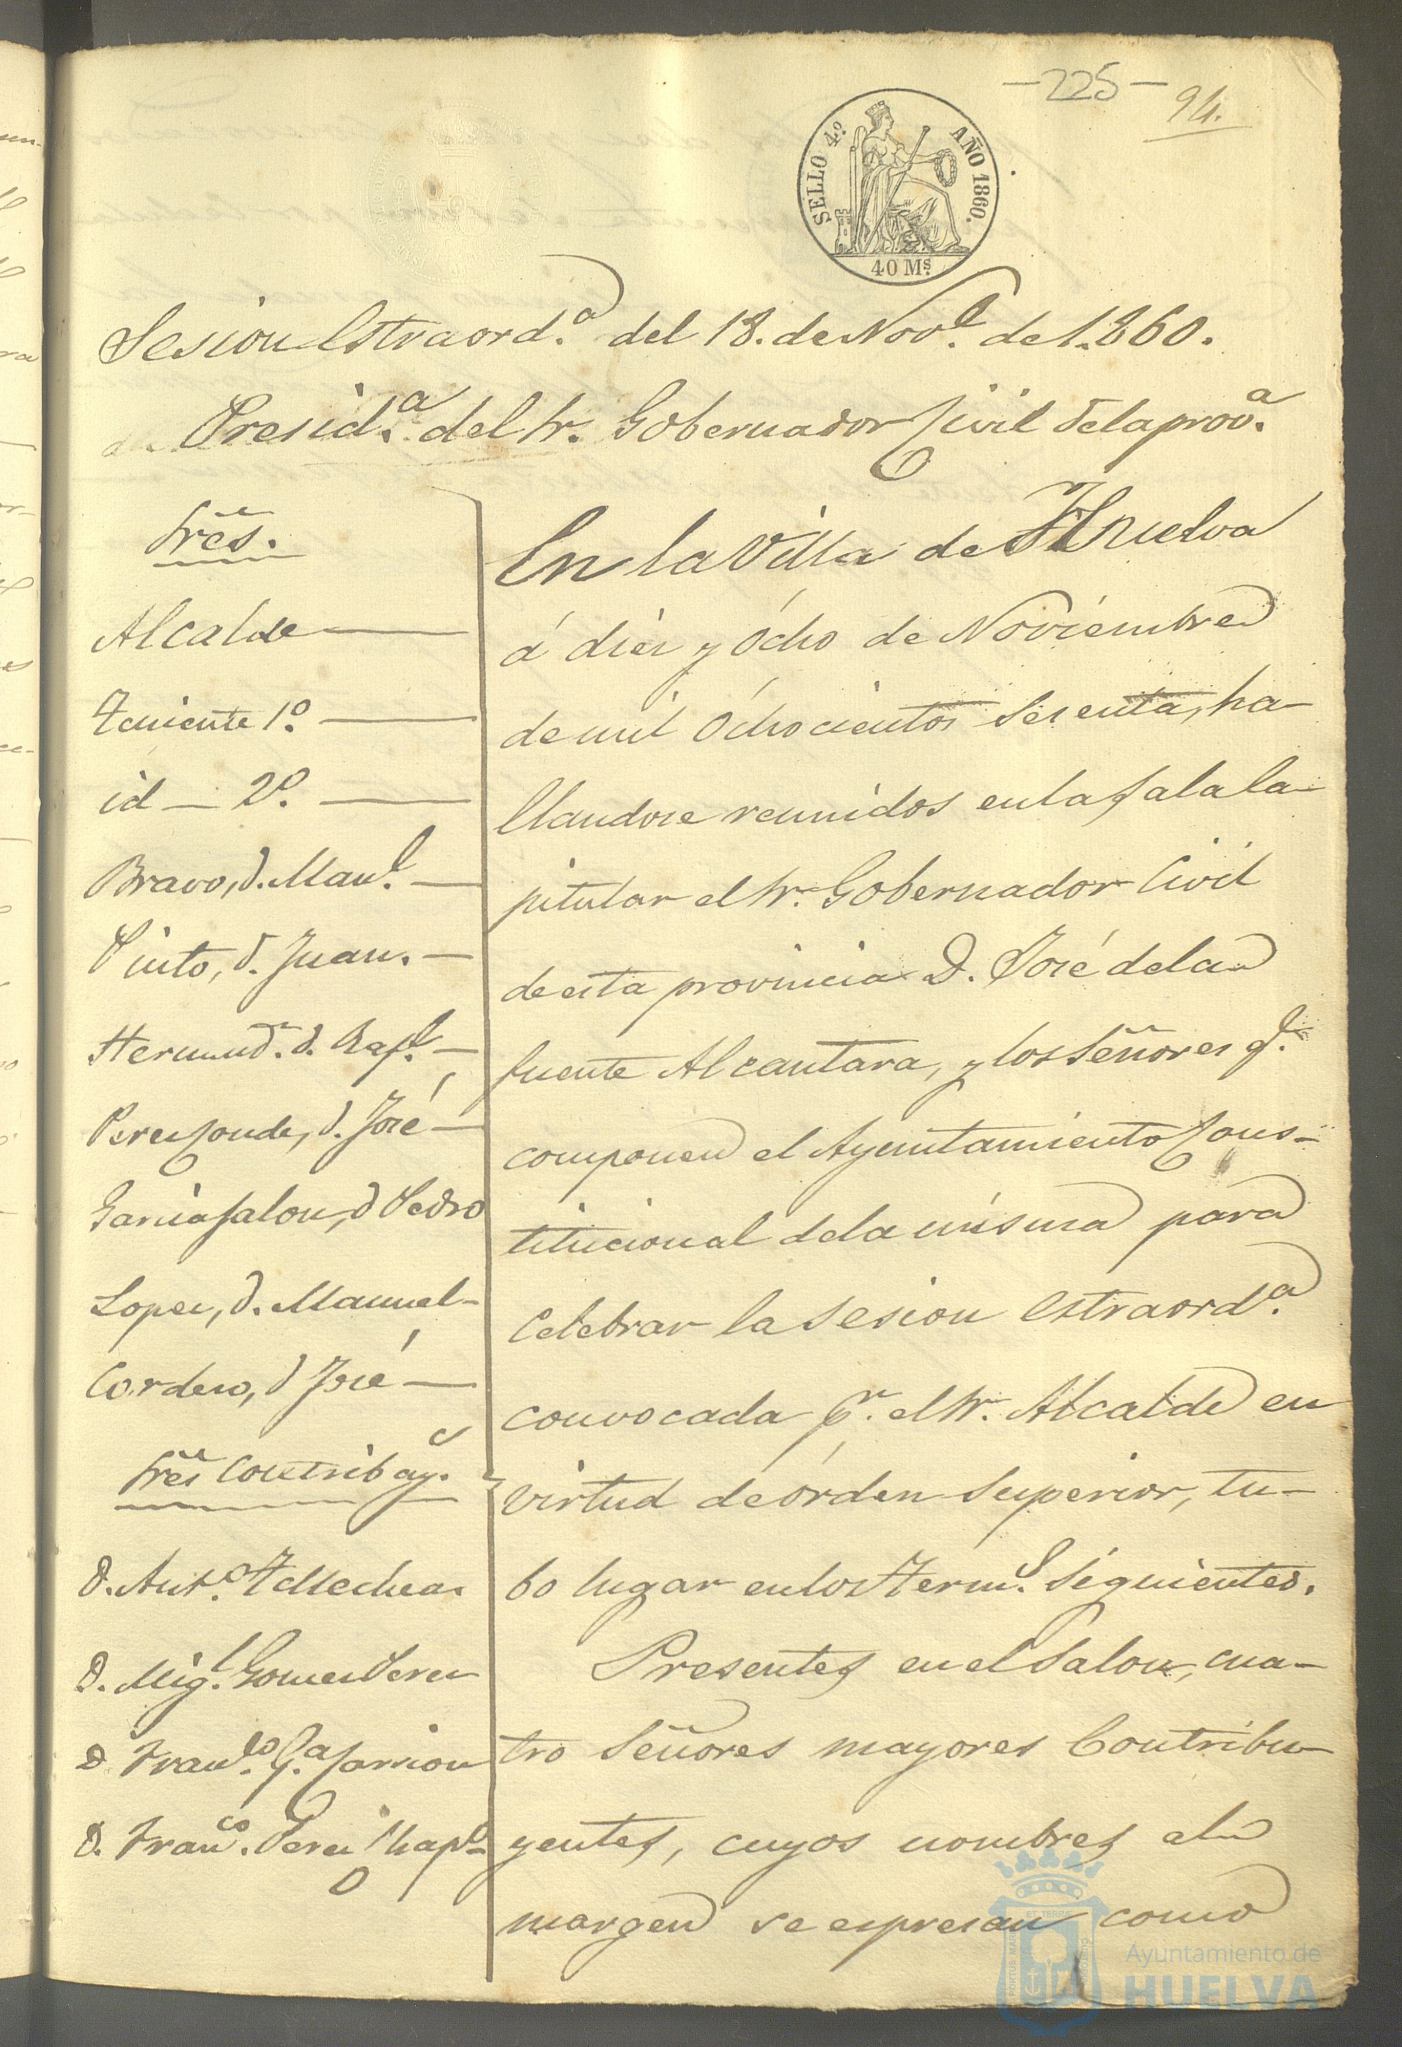 -225-
94.
SELLO 4.º AÑO 1860.
40 Mˢ.
Sesion Estraord.ª del 18. de Nov.ᵉ de 1.860.
Presid.ª del Sr. Gobernador Civil de la prov.ª
Sres.
Alcalde
Teniente 1.º
id 2.º
Bravo, d. Man.ˡ
Pinto, d. Juan.
Hernand.ᶻ d. Raf.ˡ
Perez Conde, d. José
Garcia Jalon, d Pedro
Lopez, d. Manuel
Cordero, d José
Sres Contribuy.ˢ
D. Ant.º Tellechea.
D. Mig.ˡ Gomez Perez
D Fran.ᶜᵒ G.ª
D. Fran.ᶜᵒ Perez
En la Villa de Huelva
á diez y Ócho de Noviembre
de mil Óchocientos Sesenta, ha-
llandose reunidos en la Sala Ca-
pitular el Sr. Gobernador Civil
de esta provincia D. José de la
fuente Alcantara, y los Señores q.ᵉ
componen el Ayuntamiento Cons-
titucional de la misma para
Celebrar la Sesion Estraord.ª
convocada p.ʳ el Sr. Alcalde en
virtud de órden Superior, tu-
bo lugar en los Term.ˢ Siguientes.
Presentes en el Salon, cua-
tro Señores mayores Contribu-
yentes, cuyos nombres al
margen se espresan como
Ayuntamiento de
HUELVA